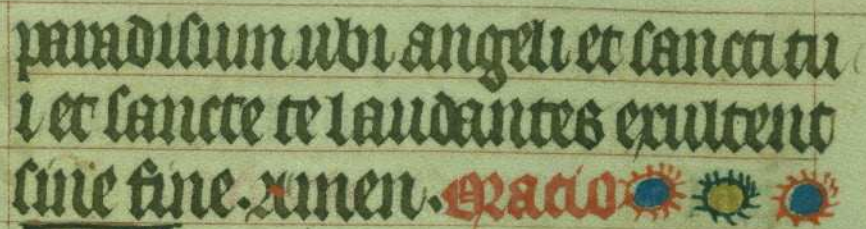 paradisum ubi angeli et sancti tu
i et sancte te laudantes exultent
sine fine. Amen. Oracio